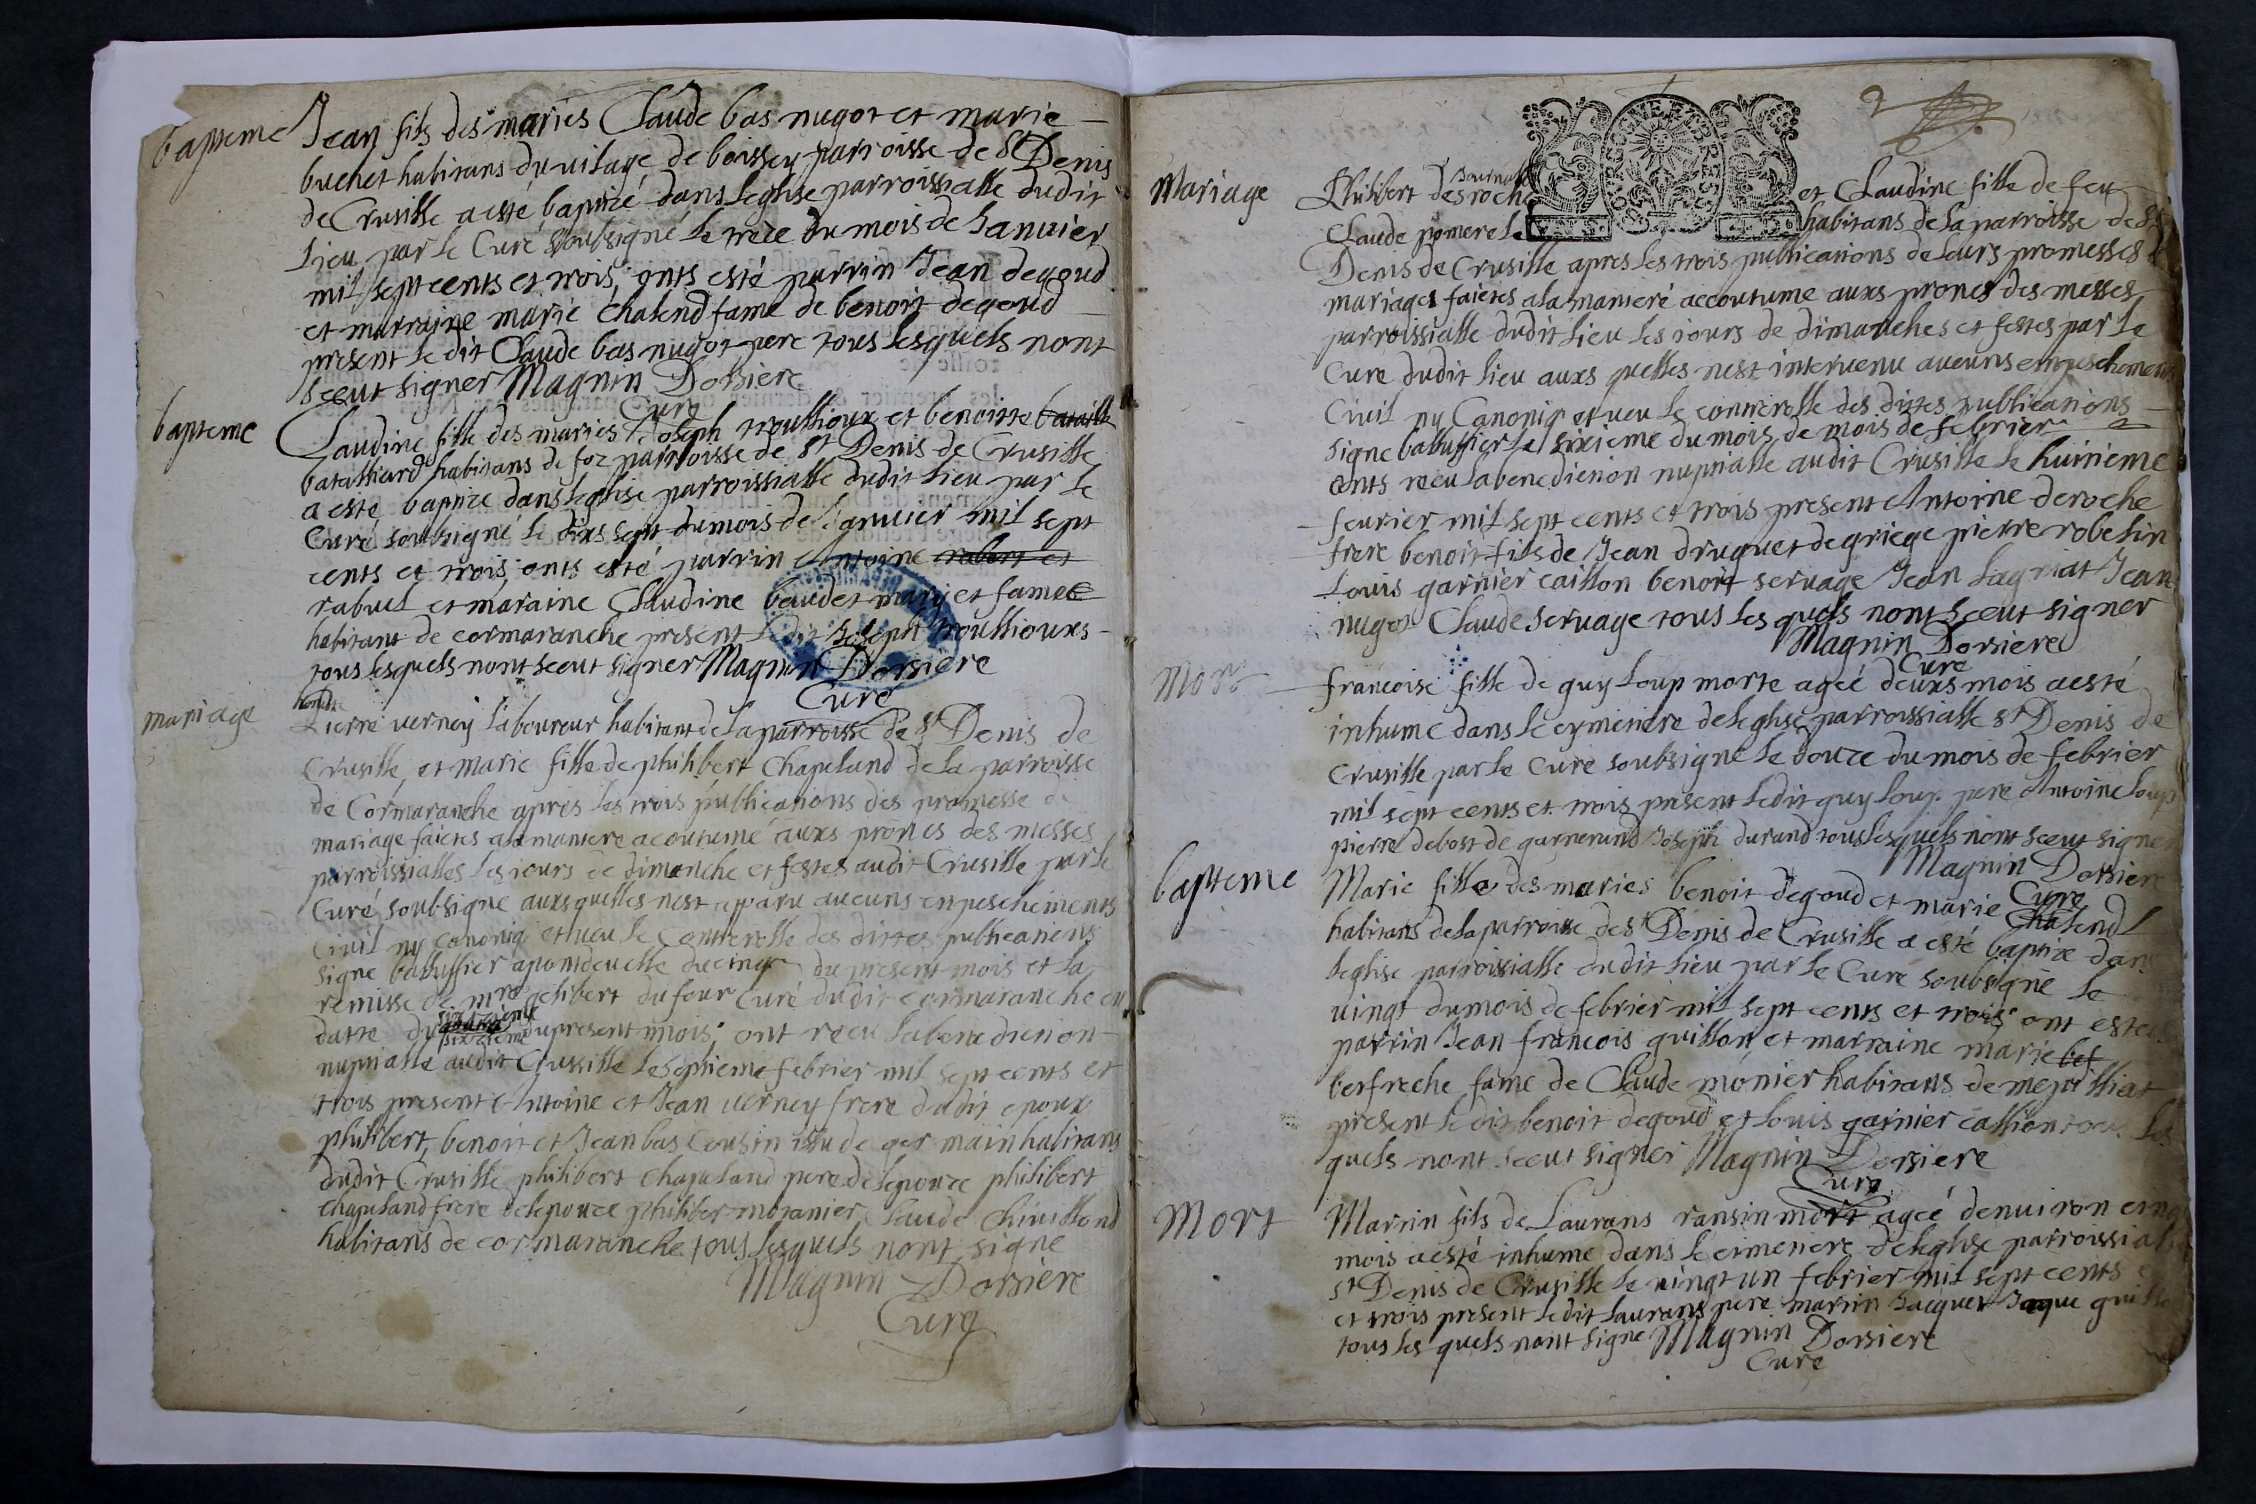 bapteme
Jean fils des maries Claude bas nugot et marie
buchet habitans du vilage de boissey parroisse de St Denis
de Crusille a esté baptizé dans leglise parroissialle dudit
lieu par le Curé soubsigné le treze du mois de Januier
mil sept cents et trois, onts esté parrin Jean degoud
et marraine marie chalend fame de benoit degoud
present le dit Claude bas nugot pere tous lesquels nont
sceut signer Magnin Dorsiere
Cure
bapteme
Claudine fille des maries Joseph troullioux et benoitte
bataillard habitans de foz parroisse de St Denis de Crusille
a esté baptize dans leglise parroissialle dudit lieu par le
Curé soubsigné le dixs sept du mois de Januier mil sept
cents et trois, onts esté parrin Antoine rabort et
rabuel et maraine Claudine baudet mary et fame
habitant de cormaranche present le dit Joseph troullioux
tous lesquels nont sceut signer Magnin Dorsiere
Curé
mariage
honte
Pierre verney laboureur habitant de la parroisse de St Denis de
Crusille et Marie fille de philibert Chapeland de la parroisse
de Cormaranche apres les trois publications des promesse de
mariage faictes a la maniere acoutumé auxs prones des messes
parroissialles les iours de dimanche et festes audit Crusille par le
Curé soubsigne auxsquelles nest apparu aucuns enpeschements
Civil ny canoniq et ueu le Contrerolle des dittes publications
signe baluffier a pontdeuelle du cinq du present mois et la
remisse de mre gelibert dufour Curé dudit cormaranche en
datte du sixieme du present mois, ont receu la benediction
nuptialle audit Crussille le septieme febrier mil sept cents et
trois present Antoine et Jean verney frere dudit epoux
philibert, benoit et Jean bas Cousin issu de germain habitans
dudit Crusille philibert Chapeland pere de lepouze philibert
chapeland frere de lepouze philiber moranier Claude Chivillond
habitans de cormaranche tous lesquels nont signe
Magnin Dorsiere
Cure
2
Mariage
Philibert desroche et Claudine fille de feu
Claude pomerel habitans de la parroisse de St
Denis de Crusille apres les trois publications de leurs promesses de
mariages faictes a la manieré accoutume auxs prones des messes
parroissialle dudit lieu les iours de dimanches et festes par le
Cure dudit lieu auxs quelles nest intervenu aucuns enpeschements
Civil ny Canoniq et ueu le contrerolle des dittes publications
signe baluffier le sixieme du mois de mois de febrier
onts receu la benediction nuptialle audit Crusille le huitieme
feurier mil sept cents et trois present Antoine deroche
frere benoit fils de Jean druguet de griege pierre robelin
Louis garnier caillon benoit seruage Jean Lagniat Jean
nugot Claude seruage tous les quels nont sceut signer
Magnin Dorsiere
Cure
Mort
francoise fille de guy loup morte ageé deuxs mois a esté
inhumé dans le cymetiere de leglise parroissialle St Denis de
Crusille par le Curé soubsigné le douze du mois de febrier
mil sept cents et trois present ledit guy loup pere Antoine loup
pierre debost de garnerand Joseph durand tous lesquels nont sceut signer
Magnin Dorsiere
Cure
bapteme
Marie fille des maries benoit degoud et marie Chalend
habitans de la parroisse de St Denis de Crusille a esté baptize dans
leglise parroissialle dudit lieu par le Curé soubsigné le
vingt du mois de febrier mil sept cents et trois ont esté
parrin Jean francois guillon et marraine marie bef
berfreche fame de Claude monier habitans de mepilliat
present le dit benoit degoud et louis garnier callion tous les
quels nont sceut signer Magnin Dorsiere
Cure
Mort
Martin fils de Laurans ransin mort ageé denuiron cinq
mois a esté inhume dans le cimetiere de leglise parroissialle
St Denis de Crusille le vingt un febrier mil sept cents
et trois present ledit laurans pere martin Jacquet Jaque
tous les quels nont signe Magnin Dorsiere
Cure